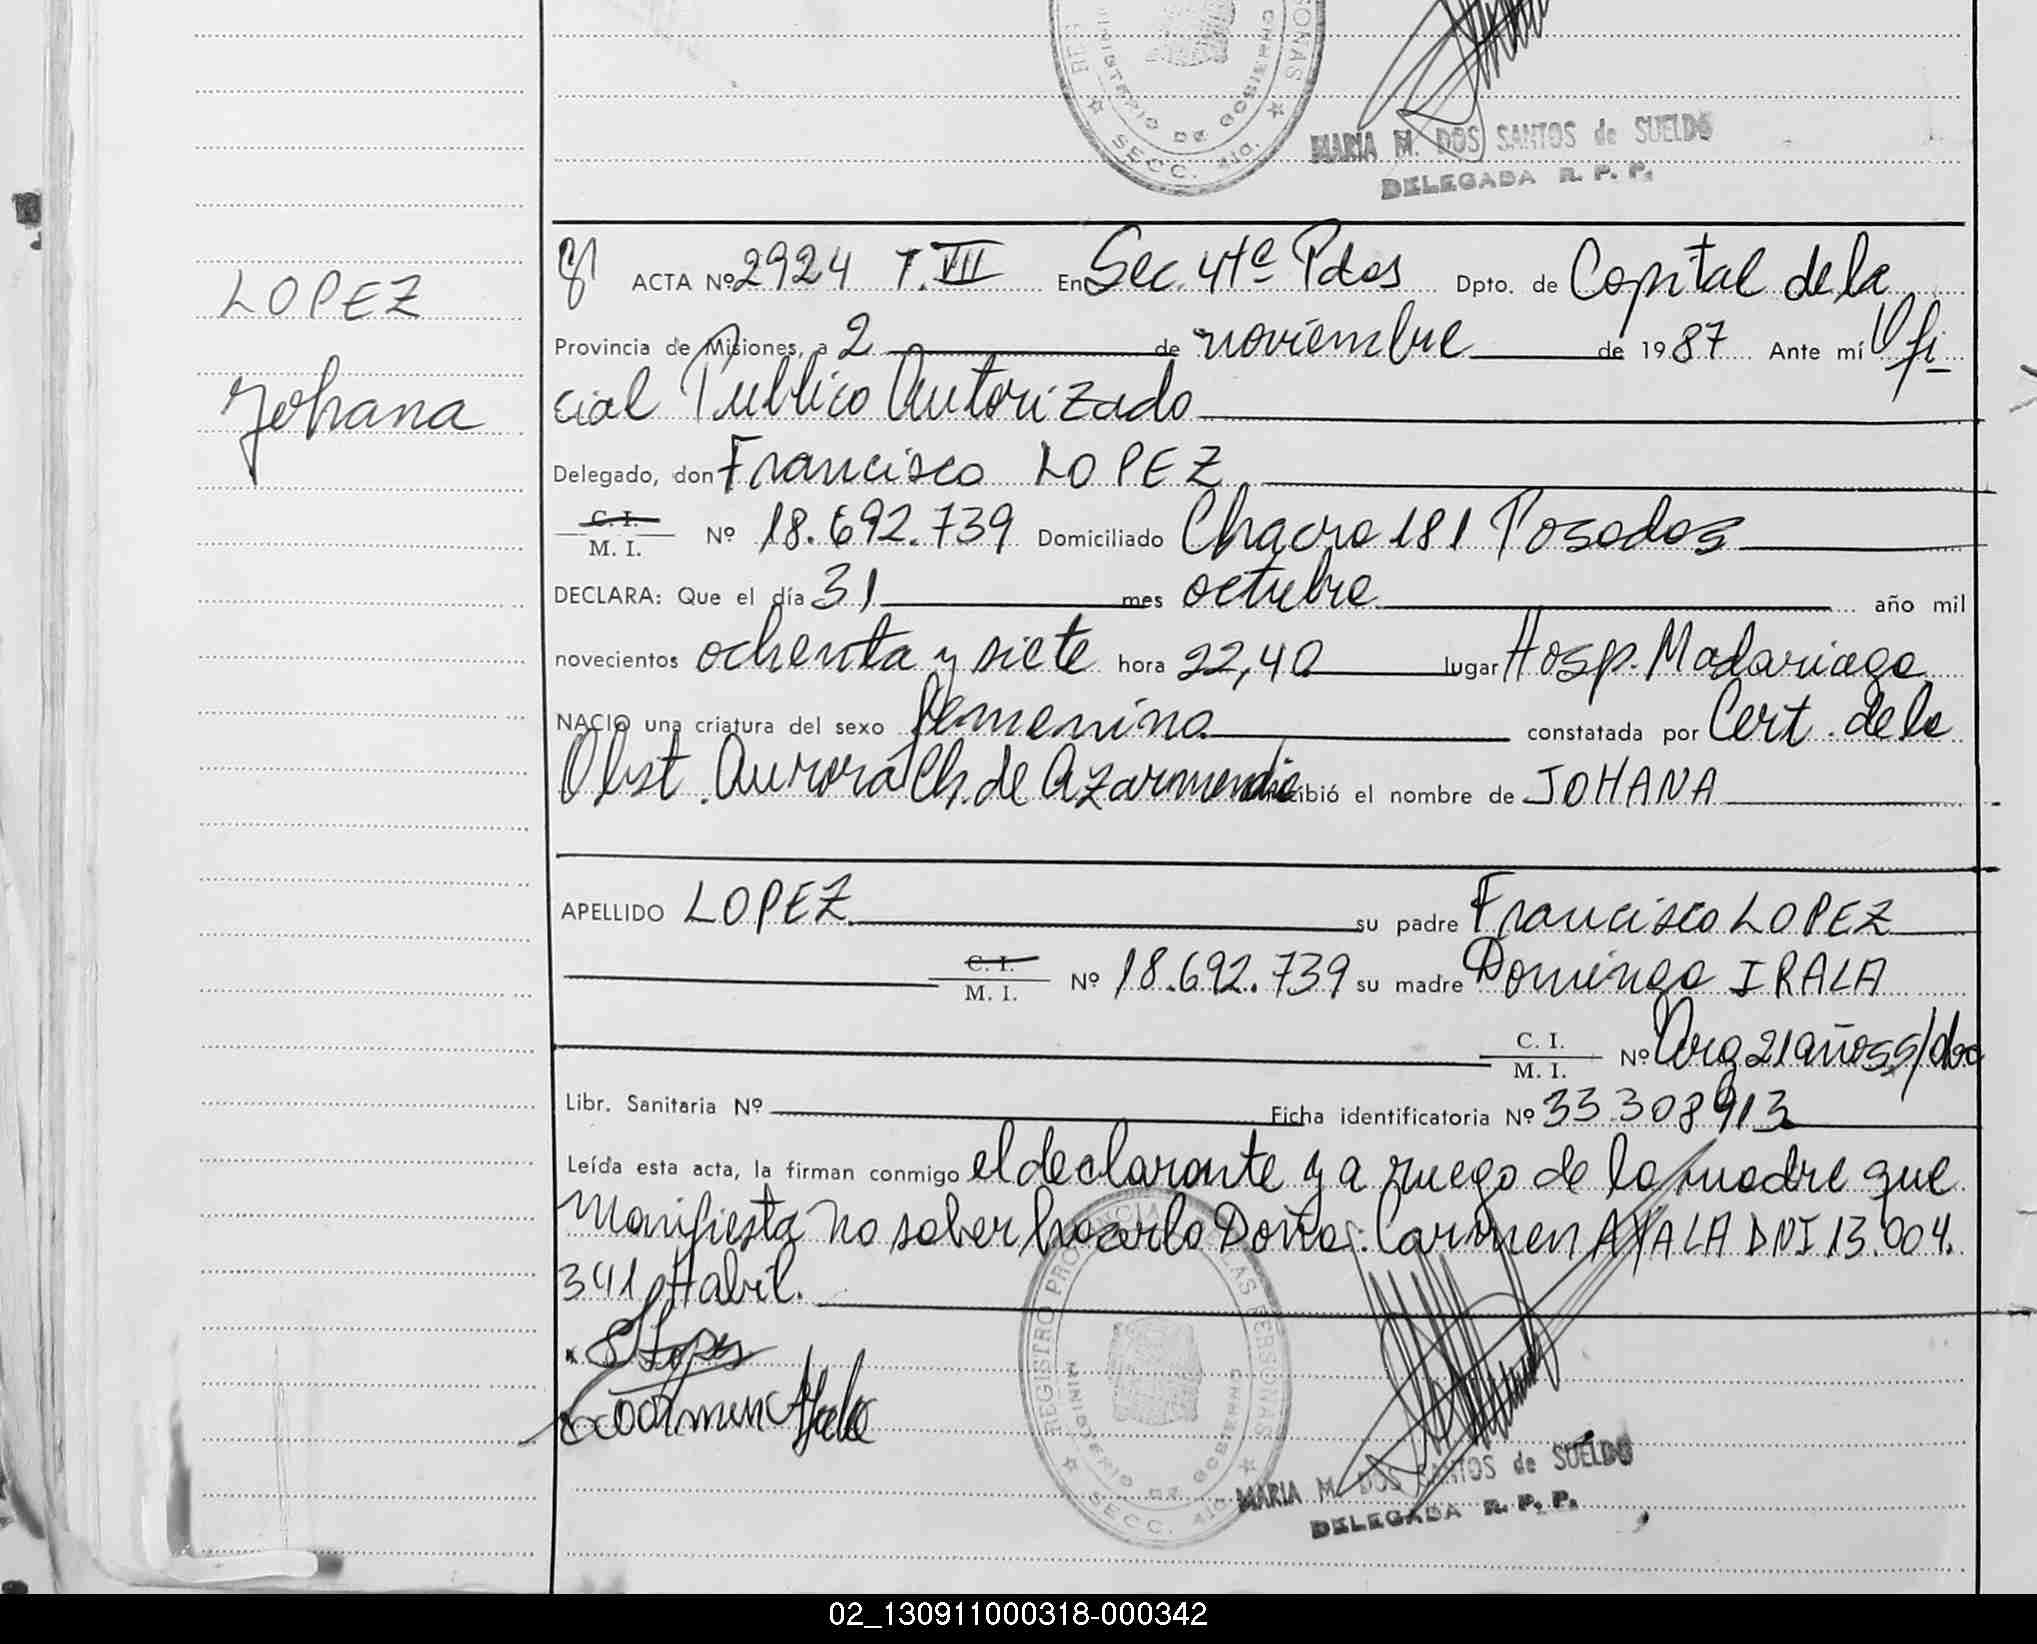 MINISTERIO DE GOBIERNO
SECC. 4ta.
MARIA M. DOS SANTOS de SUELDO
DELEGADA R. P. P.
LOPEZ
Johana
ACTA Nº 2924 T. VII En Sec. 4ta Pdas Dpto. de Capital de la
Provincia de Misiones, a 2 de noviembre de 1987 Ante mí Ofi
cial Publico Autorizado
Delegado, don Francisco LOPEZ
C. I.
M. I. Nº 18.692.739 Domiciliado Chacra 181 Posadas
DECLARA: Que el día 31 mes octubre año mil
novecientos ochenta y siete hora 22,40 lugar Hosp. Madariaga
NACIO una criatura del sexo femenino constatada por Cert. de la
Obst. Aurora Ch. de Azarmendia cibió el nombre de JOHANA
APELLIDO LOPEZ su padre Francisco LOPEZ
C. I.
M. I. Nº 18.692.739 su madre Dominga IRALA
C. I.
M. I. Nº Arg. 21 años s/doc
Libr. Sanitaria Nº Ficha identificatoria Nº 33.308913
Leída esta acta, la firman conmigo el declarante y a ruego de la madre que
manifiesta no saber hacerlo Doña: Carmen AYALA DNI 13.004.
341 Habil.
REGISTRO PROVINCIAL DE LAS PERSONAS
MINISTERIO DE GOBIERNO
SECC. 4ta.
Carmen Ayala
MARIA M. DOS SANTOS de SUELDO
DELEGADA R. P. P.
02_130911000318-000342